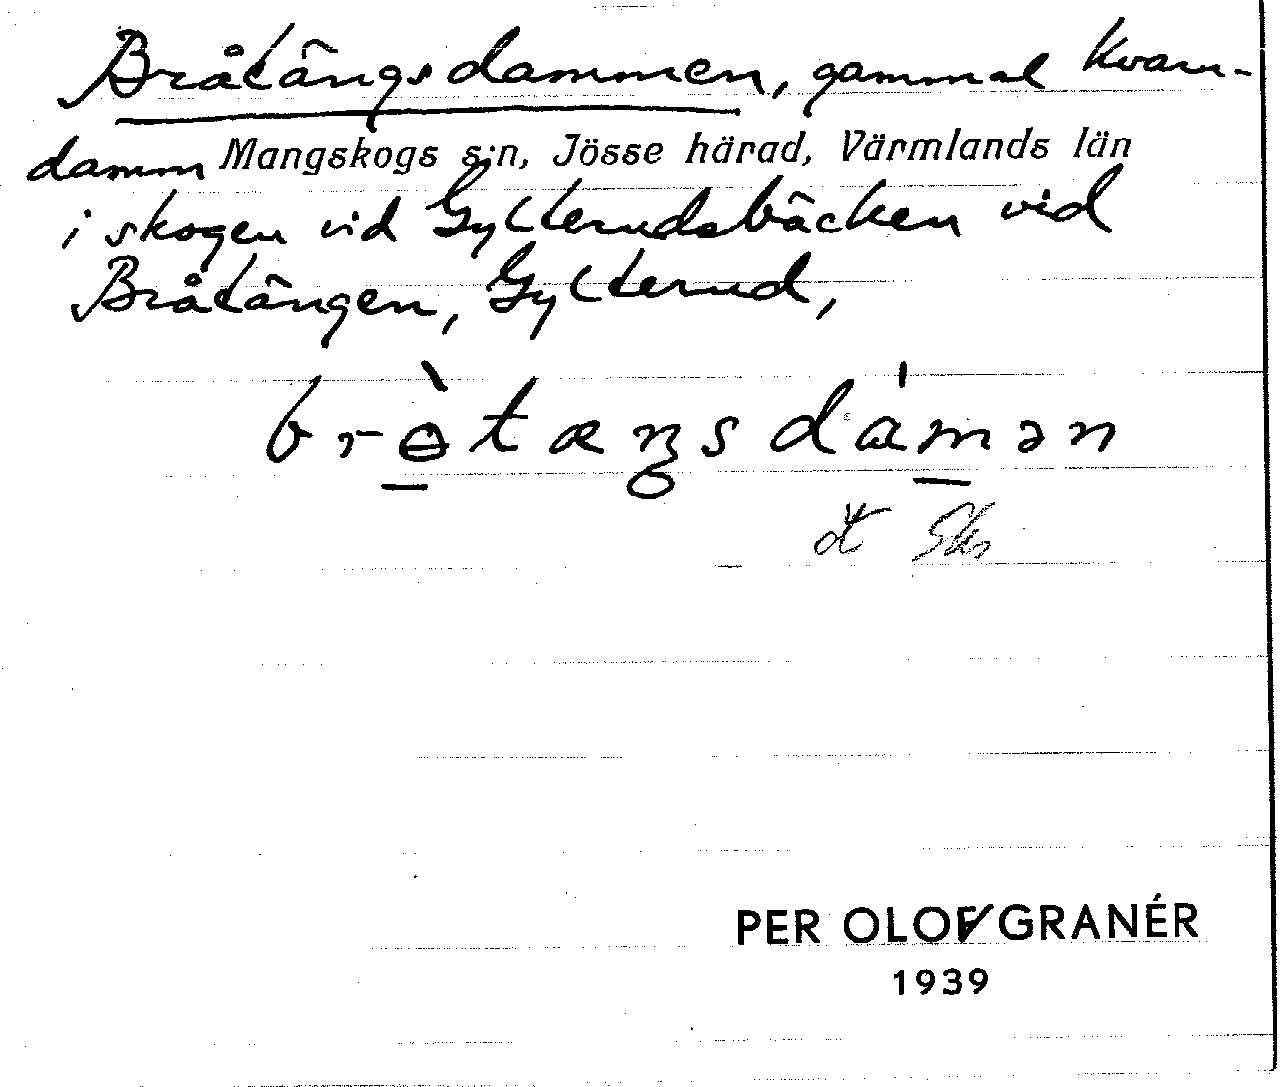 Bråtängsdammen, gammal kvarn-
damm Mangskogs s:n, Jösse härad, Värmlands län
i skogen vid Gylterudsbäcken vid
Bråtängen, Gylterud,
brɵ̀tæŋsdámən
PER OLOV GRANÉR
1939